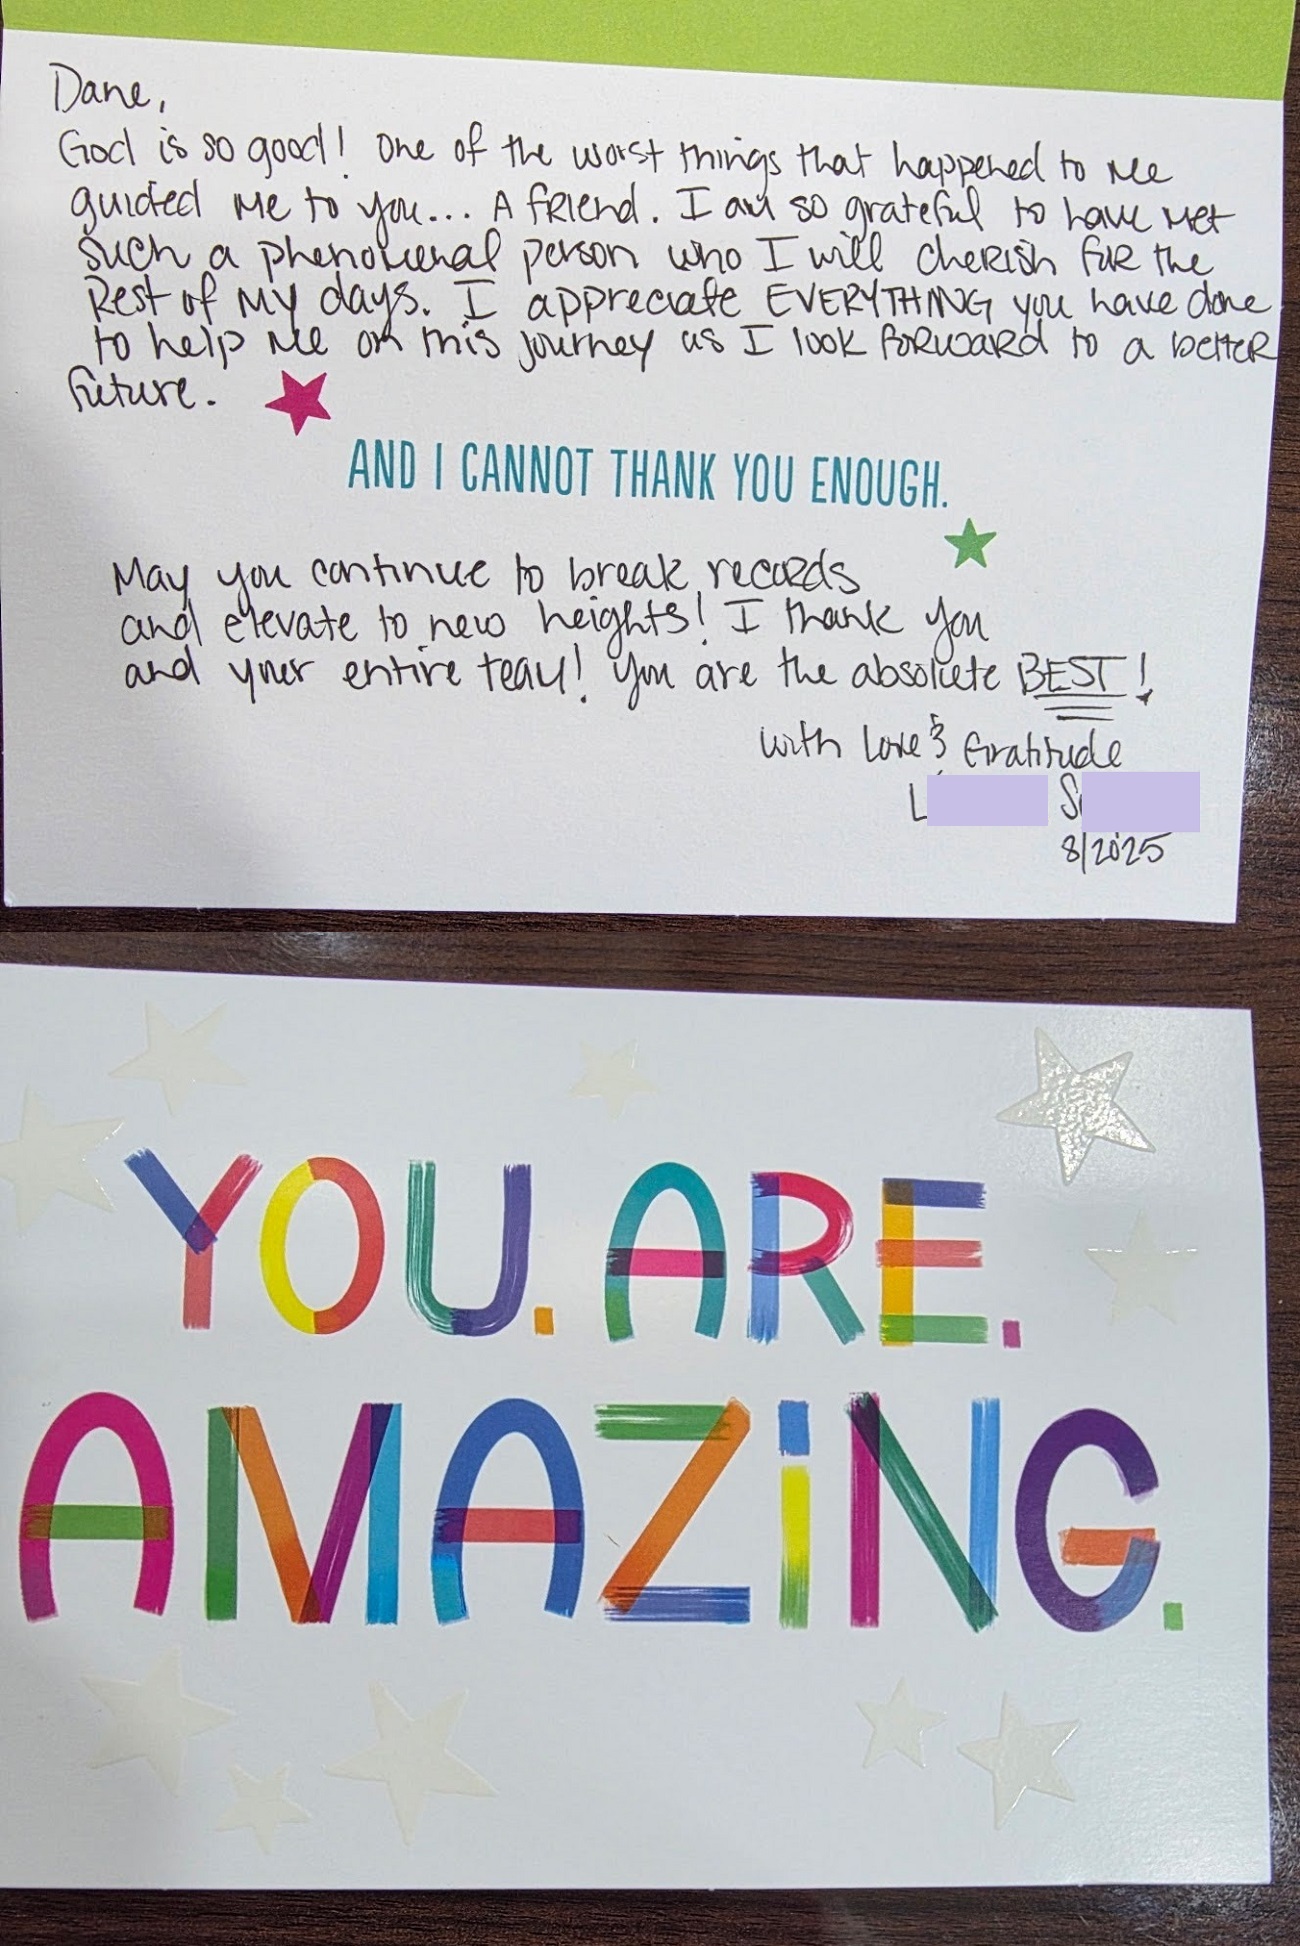 Dane,
God is so good! One of the worst things that happened to me
guided me to you... A friend. I am so grateful to have met
such a phenomenal person who I will cherish for the
Rest of my days. I appreciate EVERYTHING you have done
to help me on this journey as I look forward to a better
future.
AND I CANNOT THANK YOU ENOUGH.
May you continue to break records
and elevate to new heights! I thank you
and your entire team! You are the absolute BEST!
with Love & Gratitude
L S
8/2025
YOU. ARE.
AMAZiNG.